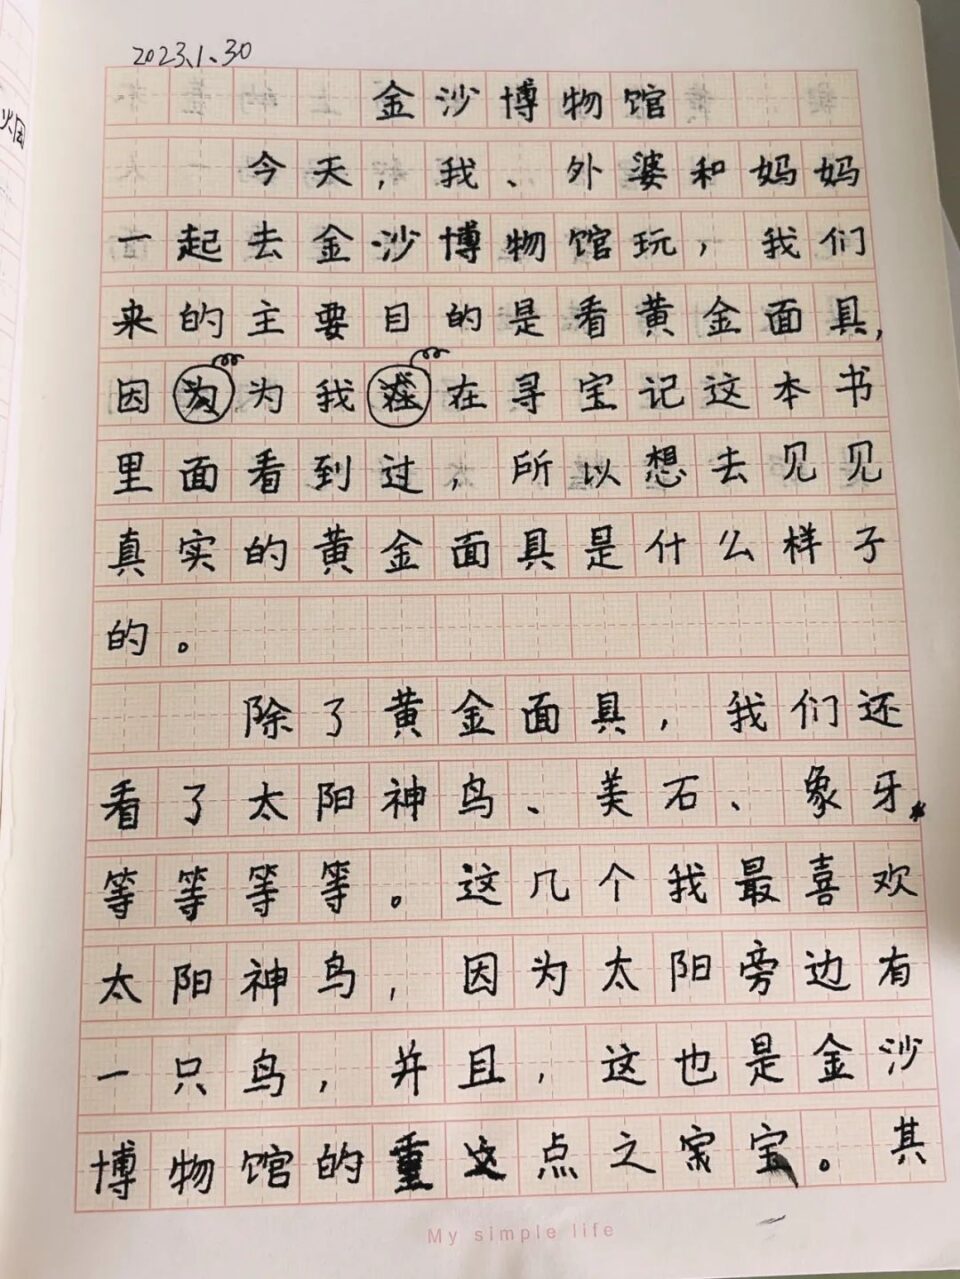 2023.1.30
金沙博物馆
今天，我、外婆和妈妈
一起去金沙博物馆玩，我们
来的主要目的是看黄金面具，
因为我在寻宝记这本书
里面看到过，所以想去见见
真实的黄金面具是什么样子
的。
除了黄金面具，我们还
看了太阳神鸟、美石、象牙
等等等等。这几个我最喜欢
太阳神鸟，因为太阳旁边有
一只鸟，并且，这也是金沙
博物馆的重点之宝。其
My simple life